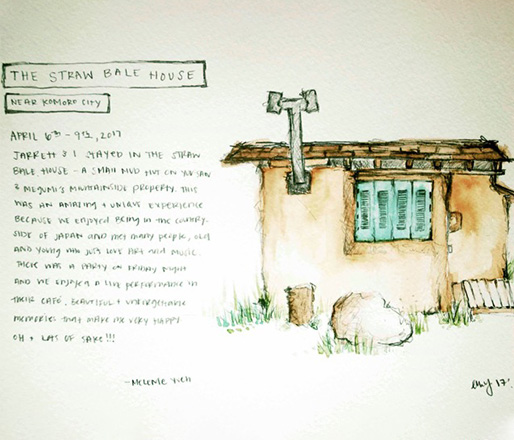 THE STRAW BALE HOUSE
NEAR KOMORO CITY
APRIL 6TH - 9TH, 2017
JARRETT & I STAYED IN THE STRAW
BALE HOUSE - A SMALL MUD HUT ON YUKSAN
& MEGUMI'S MOUNTAINSIDE PROPERTY. THIS
WAS AN AMAZING & UNIQUE EXPERIENCE
BECAUSE WE ENJOYED BEING IN THE COUNTRY-
SIDE OF JAPAN AND MET MANY PEOPLE, OLD
AND YOUNG WHO JUST LOVE ART AND MUSIC.
THERE WAS A PARTY ON FRIDAY NIGHT
AND WE ENJOYED A LIVE PERFORMANCE IN
THEIR CAFÉ. BEAUTIFUL & UNFORGETTABLE
MEMORIES THAT MAKE ME VERY HAPPY
OH & LOTS OF SAKE!!!
17'